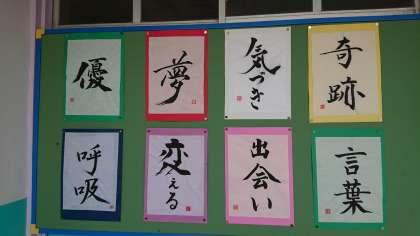 優
夢
気づき
奇跡
呼吸
変える
出会い
言葉